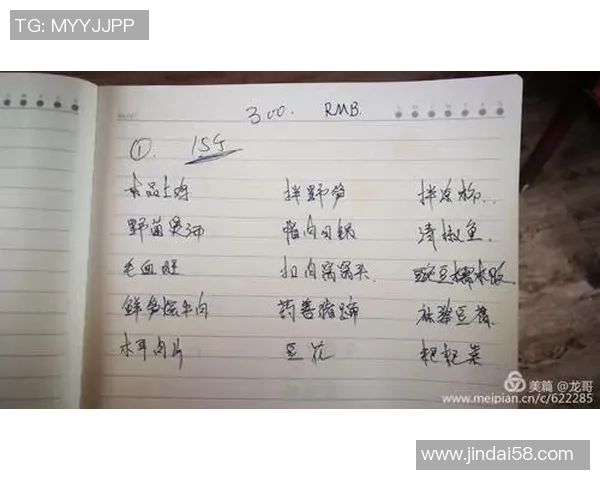 TG: MYYJJPP
300. RMB.
① 15个
拌野笋 拌凉柳..
野菌 猪肉回锅 清椒鱼.
毛血旺 扣肉窝窝头. 豌豆糯米饭
鲜笋烧牛肉 药膳猪蹄
木耳肉片 豆花 粑粑菜
美篇 @龙哥
www.meipian.cn/c/622285
www.jindai58.com